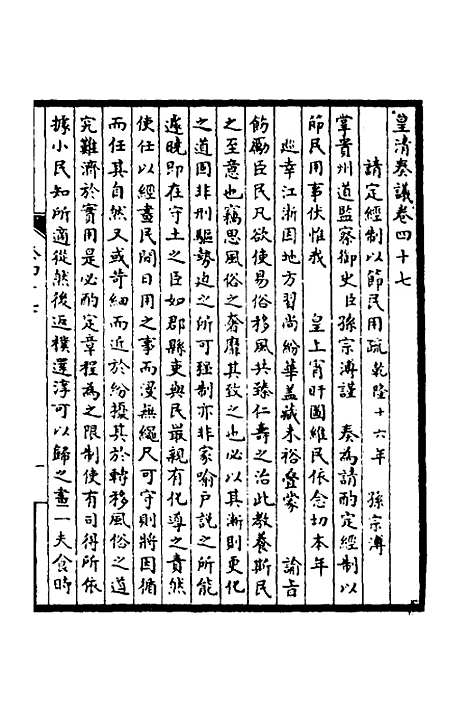 皇清奏議卷四十七
請定經制以節民用疏乾隆十六年 孫宗溥
掌貴州道監察御史臣孫宗溥謹 奏為請酌定經制以
節民用事伏惟我 皇上宵旰圖維民依念切本年
廵幸江浙因地方習尚紛華蓋藏未裕疊蒙 諭旨
飭勵臣民凡欲使易俗移風共臻仁壽之治此教養斯民
之至意也竊思風俗之奢靡其致之也必以其漸則更化
之道固非刑驅勢迫之所可强制亦非家喻戸説之所能
遽曉即在守土之臣如郡縣吏與民最親有化導之責然
使任以經畫民間日用之事而漫無繩尺可守則將因循
而任其自然又或苛細而近於紛擾其於轉移風俗之道
究難濟於實用是必酌定章程為之限制使有司得所依
據小民知所適從然後返樸還淳可以歸之畫一夫食時